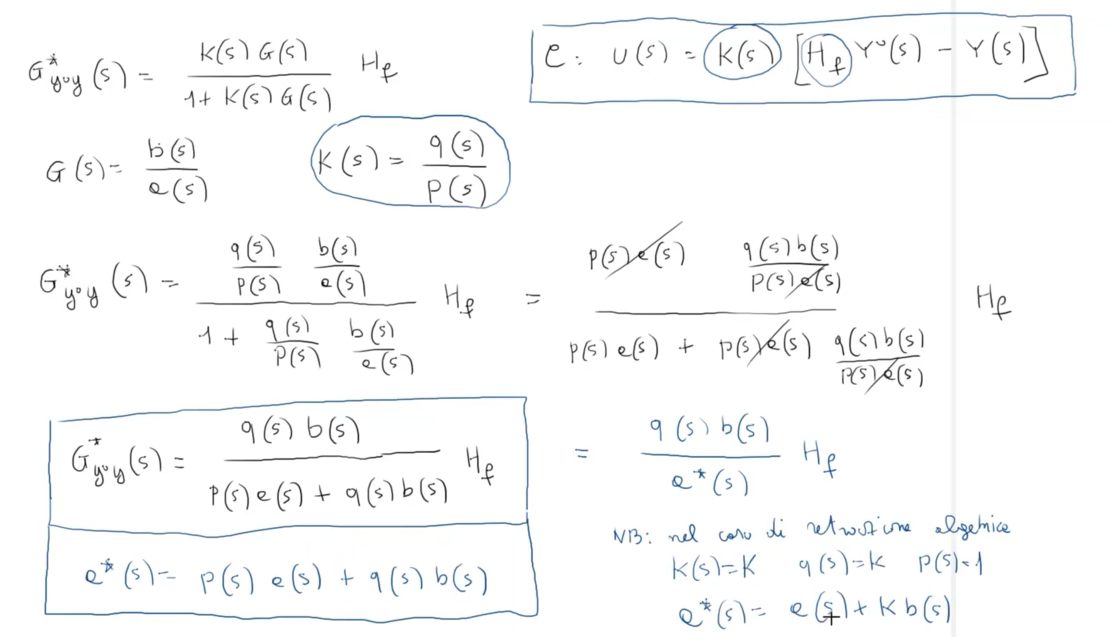 G*_{y°y}(s) = \frac{K(s) G(s)}{1 + K(s) G(s)} H_f
C: U(s) = K(s) [H_f Y°(s) - Y(s)]
G(s) = \frac{b(s)}{a(s)}
K(s) = \frac{q(s)}{p(s)}
G*_{y°y}(s) = \frac{\frac{q(s)}{p(s)} \frac{b(s)}{a(s)}}{1 + \frac{q(s)}{p(s)} \frac{b(s)}{a(s)}} H_f = \frac{p(s) a(s) \frac{q(s) b(s)}{p(s) a(s)}}{p(s) a(s) + p(s) a(s) \frac{q(s) b(s)}{p(s) a(s)}} H_f
G*_{y°y}(s) = \frac{q(s) b(s)}{p(s) a(s) + q(s) b(s)} H_f
= \frac{q(s) b(s)}{a*(s)} H_f
a*(s) = p(s) a(s) + q(s) b(s)
NB: nel caso di retroazione algebrica
K(s) = K q(s) = K p(s) = 1
a*(s) = a(s) + K b(s)